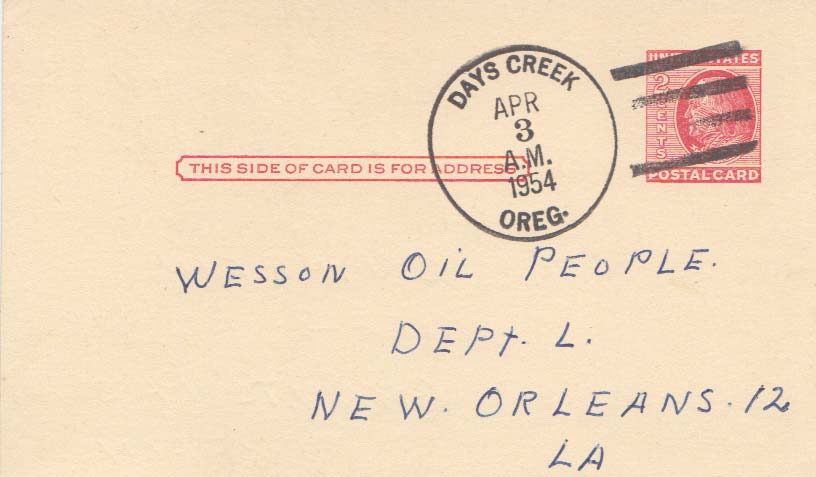 DAYS CREEK
APR
3
A.M.
1954
OREG.
UNITED STATES
2 CENTS
POSTAL CARD
THIS SIDE OF CARD IS FOR ADDRESS
WESSON OIL PEOPLE.
DEPT. L.
NEW. ORLEANS. 12
LA